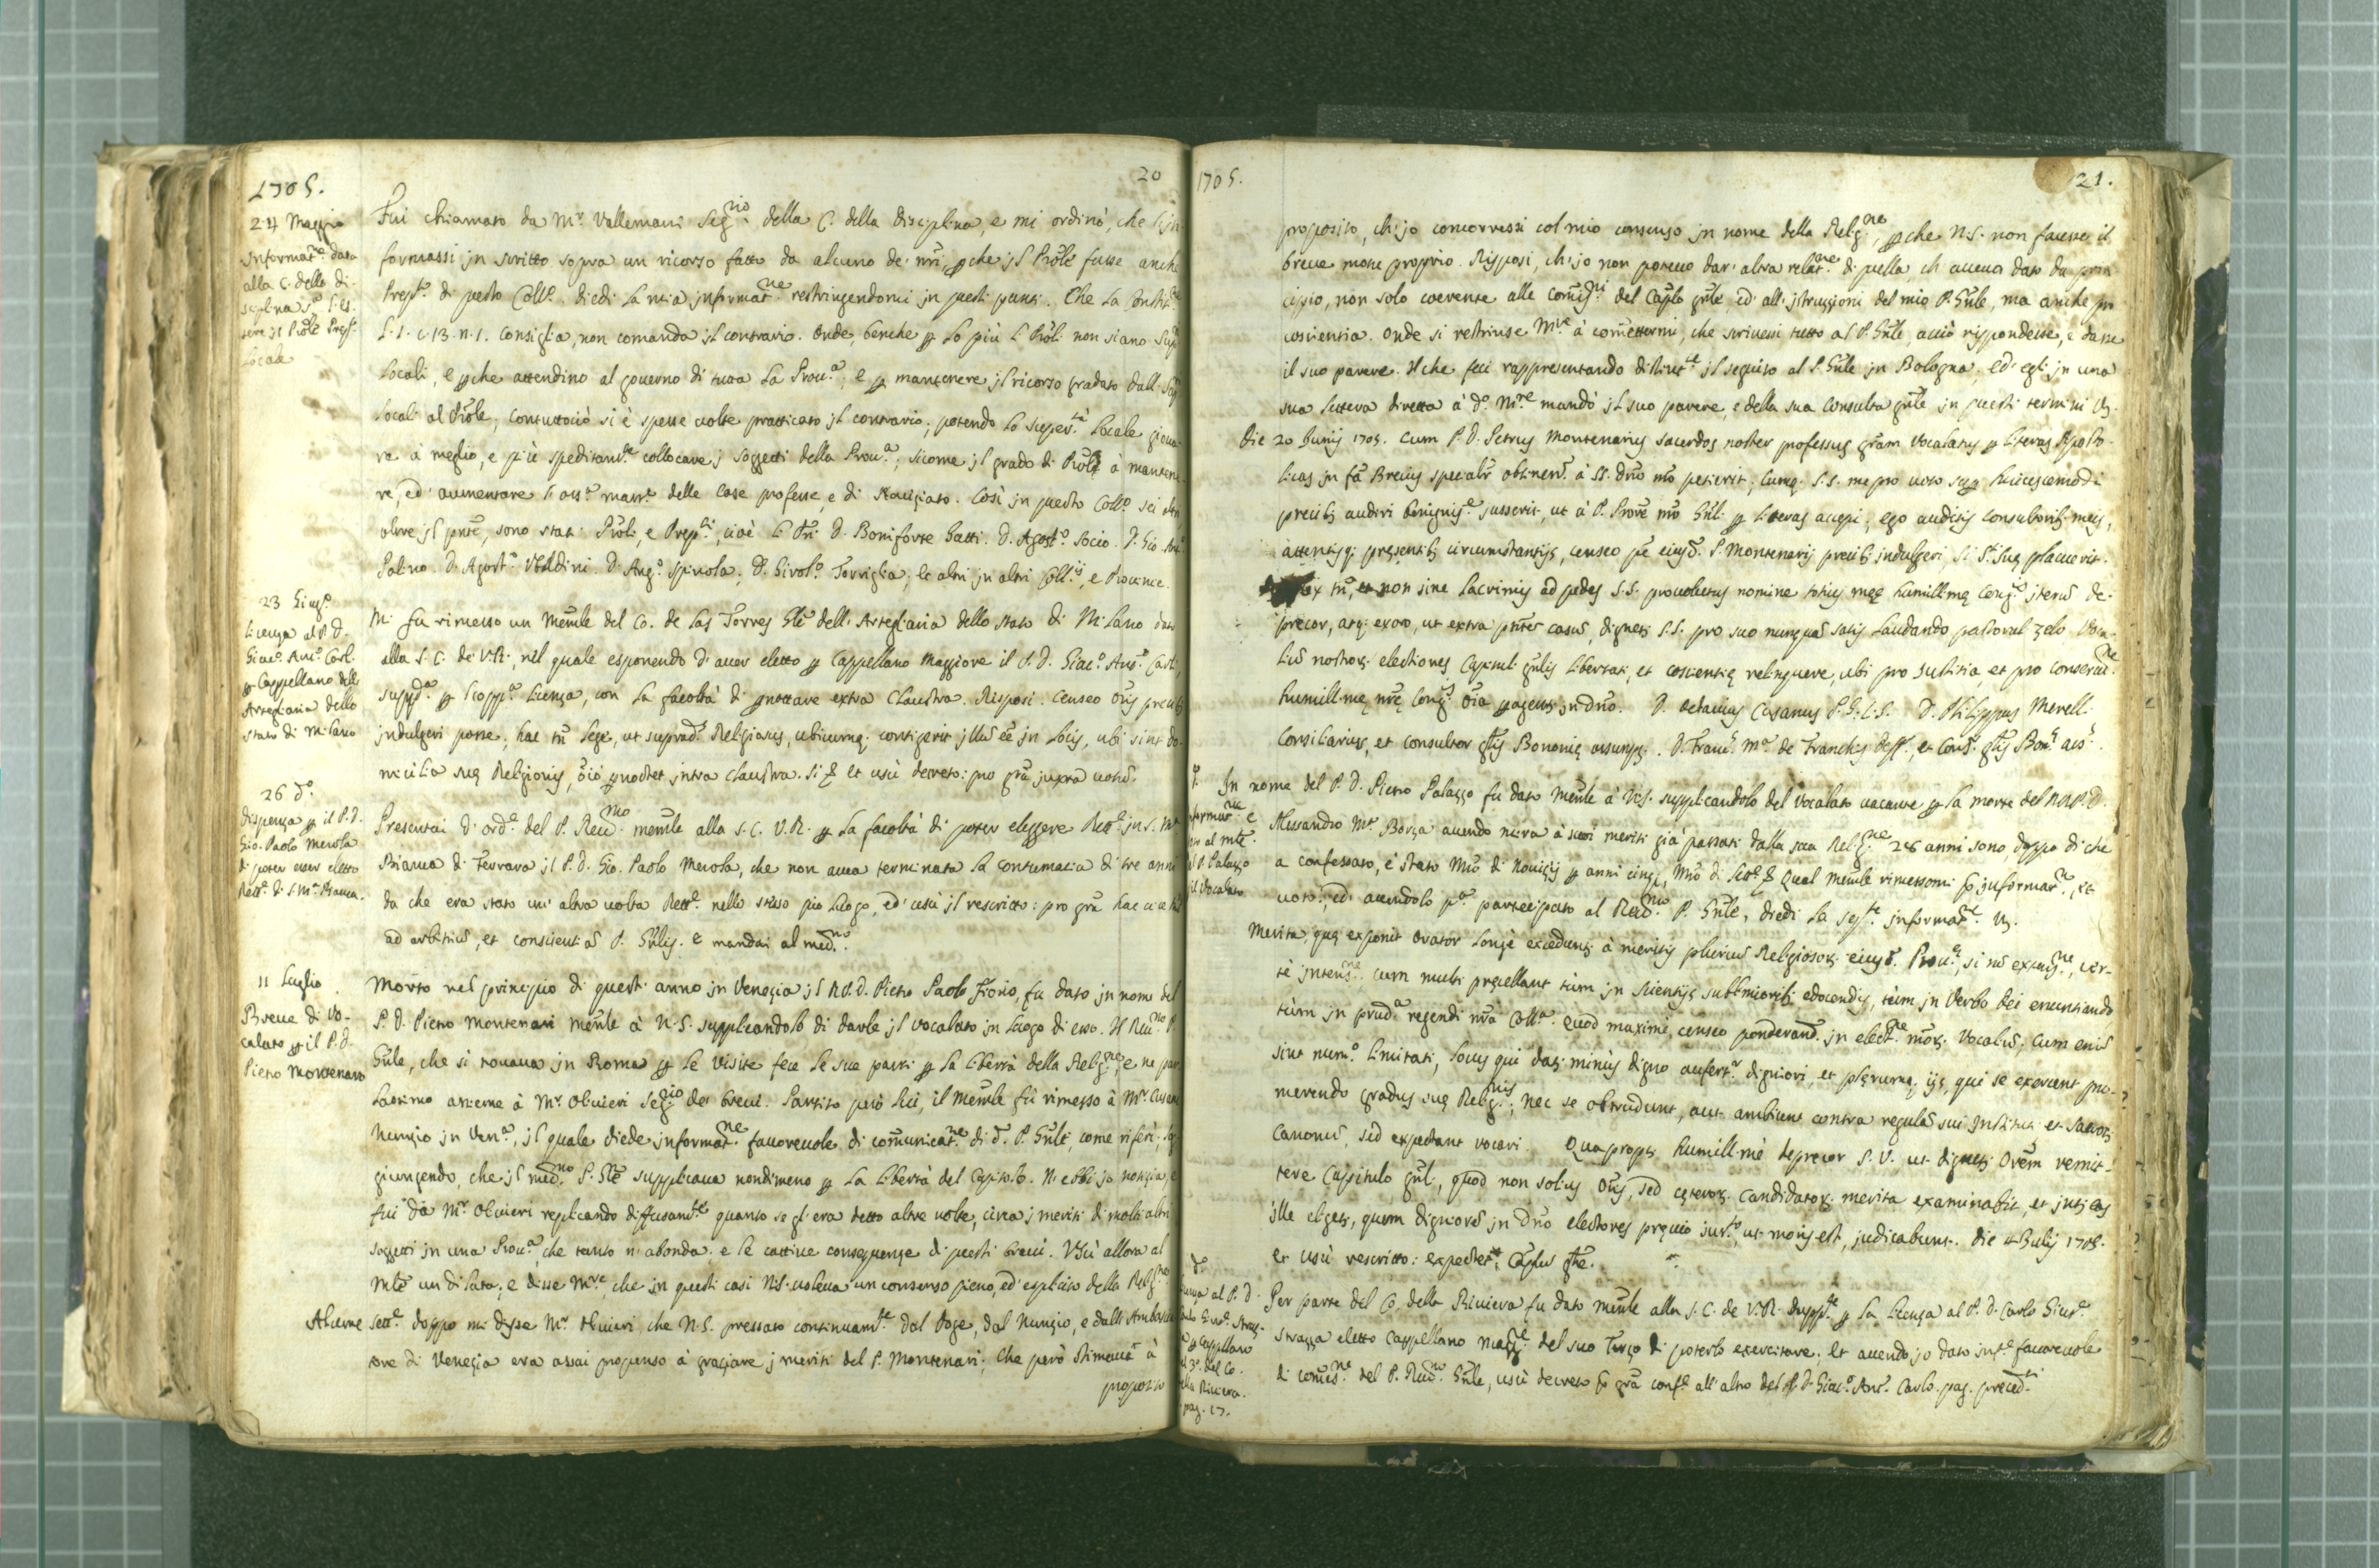 1705.
20
24 Maggio
Informat.ne data
alla C. della di-
sciplina
sere il Prole Prep.
Locale
Fui chiamato da Mr. Vallemani Seg.rio della C. della disciplina, e mi ordinò, che l'in
formassi in scritto sopra un ricorso fatto da alcuno de' nri, pche jl Prole fusse anche
Prep.to di questo Coll.o diedi la mia informat.ne restringendomi in questi punti. Che la Constit.ne
L. 1. c. 13. n. 1. consiglia, non comanda jl contrario. Onde, benche p lo più li Proli non siano Sup
Locali, e pche attendino al governo di tutta la Prou.a, e p mantenere jl ricorso gradato dall
Locali al Prole, contuttociò si è spesse uolte pratticato jl contrario; potendo lo super.tà Locale gioua-
re à meglio, e più speditam.te collocare j soggetti della Prou.a; sicome jl grado di Prole à mantene-
re, ed aumentare delle Case professe, e di Nouiziato. Così in questo Coll.o sei altri
oltre jl pnte, sono stati Proli, e Prep.ti, cioè li Pri D. Boniforte Gatti. D. Agost.o Socio. D. Gio. Ant.o
Palino. D. Agost.o Vbaldini. D. Ang.o Spinola, D. Girol.o Torriglia; le altri in altri Coll.ij, e Prouince.
23 Giug.o
Licenza al P. D.
Giac.o Ant.o Carl.
p Cappellano dell'
Artegliaria dello
Stato di Milano
Mi fu rimesso un Memle del Co. de las Torres Gle dell' Artegliaria dello Stato di Milano dato
alla S. C. de' V.R., nel quale esponendo d'auer eletto p Cappellano Maggiore il P. D. Giac.o Ant.o Carli,
supp.a p l'opp.a licenza, con la facoltà di pnottare extra Claustra. Risposi. Censeo Oris precib
indulgeri posse; hac tn lege, ut suprad. Religiosus, ubicumq. contigerit illu ee in locis, ubi sint do-
micilia suę Religionis, oio pnoctet intra claustra. Et uscì decreto: pro gra juxta uotu.
26 d.o
Dispensa p il P. D.
Gio. Paolo Merola
di poter esser eletto
Rett.e di S. Ma. Bianca.
Presentai d'ord.e del P. Reu.mo memle alla S. C. V. R. p la facoltà di poter eleggere Rett.e in S. Ma.
Bianca di Ferrara jl P. D. Gio. Paolo Merola, che non auea terminata la contumacia di tre anni
da che era stato un' altra uolta Rett.e nello stesso pio luogo, ed uscì jl rescritto: pro gra hac uice
ad arbitriu, et conscientia P. Gnlis. e mandai al med.mo.
11 Luglio
Breue di Vo-
calato p il P. D.
Pietro Montenari
Morto nel principio di questi anno in Venezia jl P. D. Pietro Paolo Fiorio, fu dato in nome del
P. D. Pietro Montenari memle à N. S. supplicandolo di darle jl vocalato in luogo di esso. Il Reu.mo P.
Gnle, che si trouaua in Roma p le visite fece le sue parti p la libertà della Relig.ne, e ne par
lassimo assieme à Mr. Oliuieri Seg.rio de' breui. Partito però lui, il memle fù rimesso à Mr. Cusani
Nunzio in Ven.a, jl quale diede informat.ne fauoreuole di comunicat.ne di d. P. Gnle, come riferì; sog
giungendo, che jl med.mo P. Gle supplicaua nondimeno p la libertà del Capitolo. N'ebbi jo notizia, e
fui da Mr. Oliuieri replicando diffusam.te quanto se gl'era detto altre uolte, circa j meriti di molti altri
soggetti in una Prou.a, che tanto n'abonda, e le cattiue conseguenze di questi breui. Uscì allora al
Mle un dilata; e disse M.re che in questi casi N.S. uoleua un consenso pieno, ed' esplicito della Relig.ne
Alcune sett.e doppo mi disse Mr. Oliuieri, che N.S. pressato continuam.te dal Doge, dal Nunzio, e dall' Ambascia
tore di Venezia era assai propenso à graziare j meriti del P. Montenari; che però stimaua à
proposito
1705.
21.
proposito, ch'jo concorressi col mio consenso in nome della Relig.ne, pche N.S. non facesse il
breue motu proprio. Risposi, ch'jo non poteuo dar' altra relat.ne di quella, ch' aueua dato da prin
cipio, non solo coerente alle Comis.ni del Caplo gnle ed' all' istruzzioni del mio P. Gnle, ma anche pr
coscientia. Onde si restrinse M.re à comettermi, che scriuessi tutto al P. Gnle, acciò rispondesse, e dasse
il suo parere. Il che feci rappresentando distint.te jl seguito al P. Gnle in Bologna, ed' egli in una
sua lettera diretta à d.o M.re mandò jl suo parere, e della sua Consulta gnle in questi termini
Die 20 Junij 1705. Cum P. D. Petrus Montenarius sacerdos noster professus gram vocalatus p literas Aposto-
licas in fa Breuis specialr obtinere à SS. Dno nro petierit; Cumq. S.S. me pro uoto sup huiuscemodi
precib audiri benignis.e jusserit, ut à P. Prore nro Gnli p literas accepi; ego auditis consultorib meis,
attentisq. pręsentib circumstantijs, censeo pse eiusd. P. Montenarij precib indulgeri, si S. Suę placuerit.
tn, et non sine lacrimis ad pedes S.S. prouolutus nomine totius meę humill.mę Cong.nis iterù de-
precor, atq. exoro, ut extra pntes casus, dignetur S.S. pro suo nunqua satis laudando pastorali zelo Voca-
liu nostror electiones Capituli gnlis libertati, et coscientię relinquere, ubi pro Justitia, et pro conseruat.ne
humill.mę nrę Cong.nis oia peragentur in Dno. D. Octauius Cusanus P.G.C.S. D. Philippus Merell.
Consiliarius, et consultor gnlis Bononię assumptus. D. Franc. M.a de Franchis deff.r, et Cons.r gnlis Bon.ę ass.
d.o
Informat.ne e
al mle
P. Palazzo
p il Vocalato
In nome del P. D. Pietro Palazzo fu dato Memle à N.S. supplicandolo del vocalato uacante p la morte del P. D.
Alessandro Ma. Borza auendo mira à suoi meriti già passati dalla sua Relig.ne 28 anni sono, doppo di che
a confessato, è stato Mro di Nouizij p anni cinq, Mro di Qual memle rimessomi p informat.ne, et
uoto; ed' auendolo p.a partecipato al Reu.mo P. Gnle, diedi la seg.te informat.e
Merita, quę exponit Orator longè exceduntur à meritis plurium Religiosor eiusd. Prou.ę, si no extens.ne, cer-
tè intens.ne. Cum multi pręcellant tùm in scientijs sublimiorib edocendis, tùm in Verbo Dei enuntiando
tùm in prud.a regendi nra Coll.a. Quod maximè, censeo ponderand. in elect.ne nror Vocaliu; Cum eniu
sint num.o limitati, locus qui datur minùs digno aufert.r digniori, et plęrumq. ijs, qui se exercent pro-
merendo gradus suę Relig.nis, nec se obtrudunt, aut ambiunt contra regulas sui Instituti et sacror
Canonu, sed expectant vocari. Quapropter humill.mè deprecor S.V. ut dignetur Orem remit-
tere Capitulo gnli, quod non solius Oris, sed cęteror Candidator merita examinabit, et
ille eligetur, quem digniore in Dno electores pręuio jur.to, ut moris est, judicabunt. Die 11 Julij 1705.
et uscì rescritto: expectet Caplu gnle.
d.o
Licenza al P. D.
Carlo Gius.e Straz-
za p Cappellano
del 3.o del Co.
della Riuiera.
pag. 17.
Per parte del Co. della Riuiera fu dato memle alla S. C. de V.R. supp.te p la licenza al P. D. Carlo Gius.e
Strazza eletto Cappellano Magg.re del suo Terzo di poterlo esercitare; et auendo jo dato inf.e fauoreuole
di comis.ne del P. Reu.mo Gnle, uscì decreto p gra conf.e all' altro del P. D. Giac.o Ant.o Carlo. pag. preced.ti